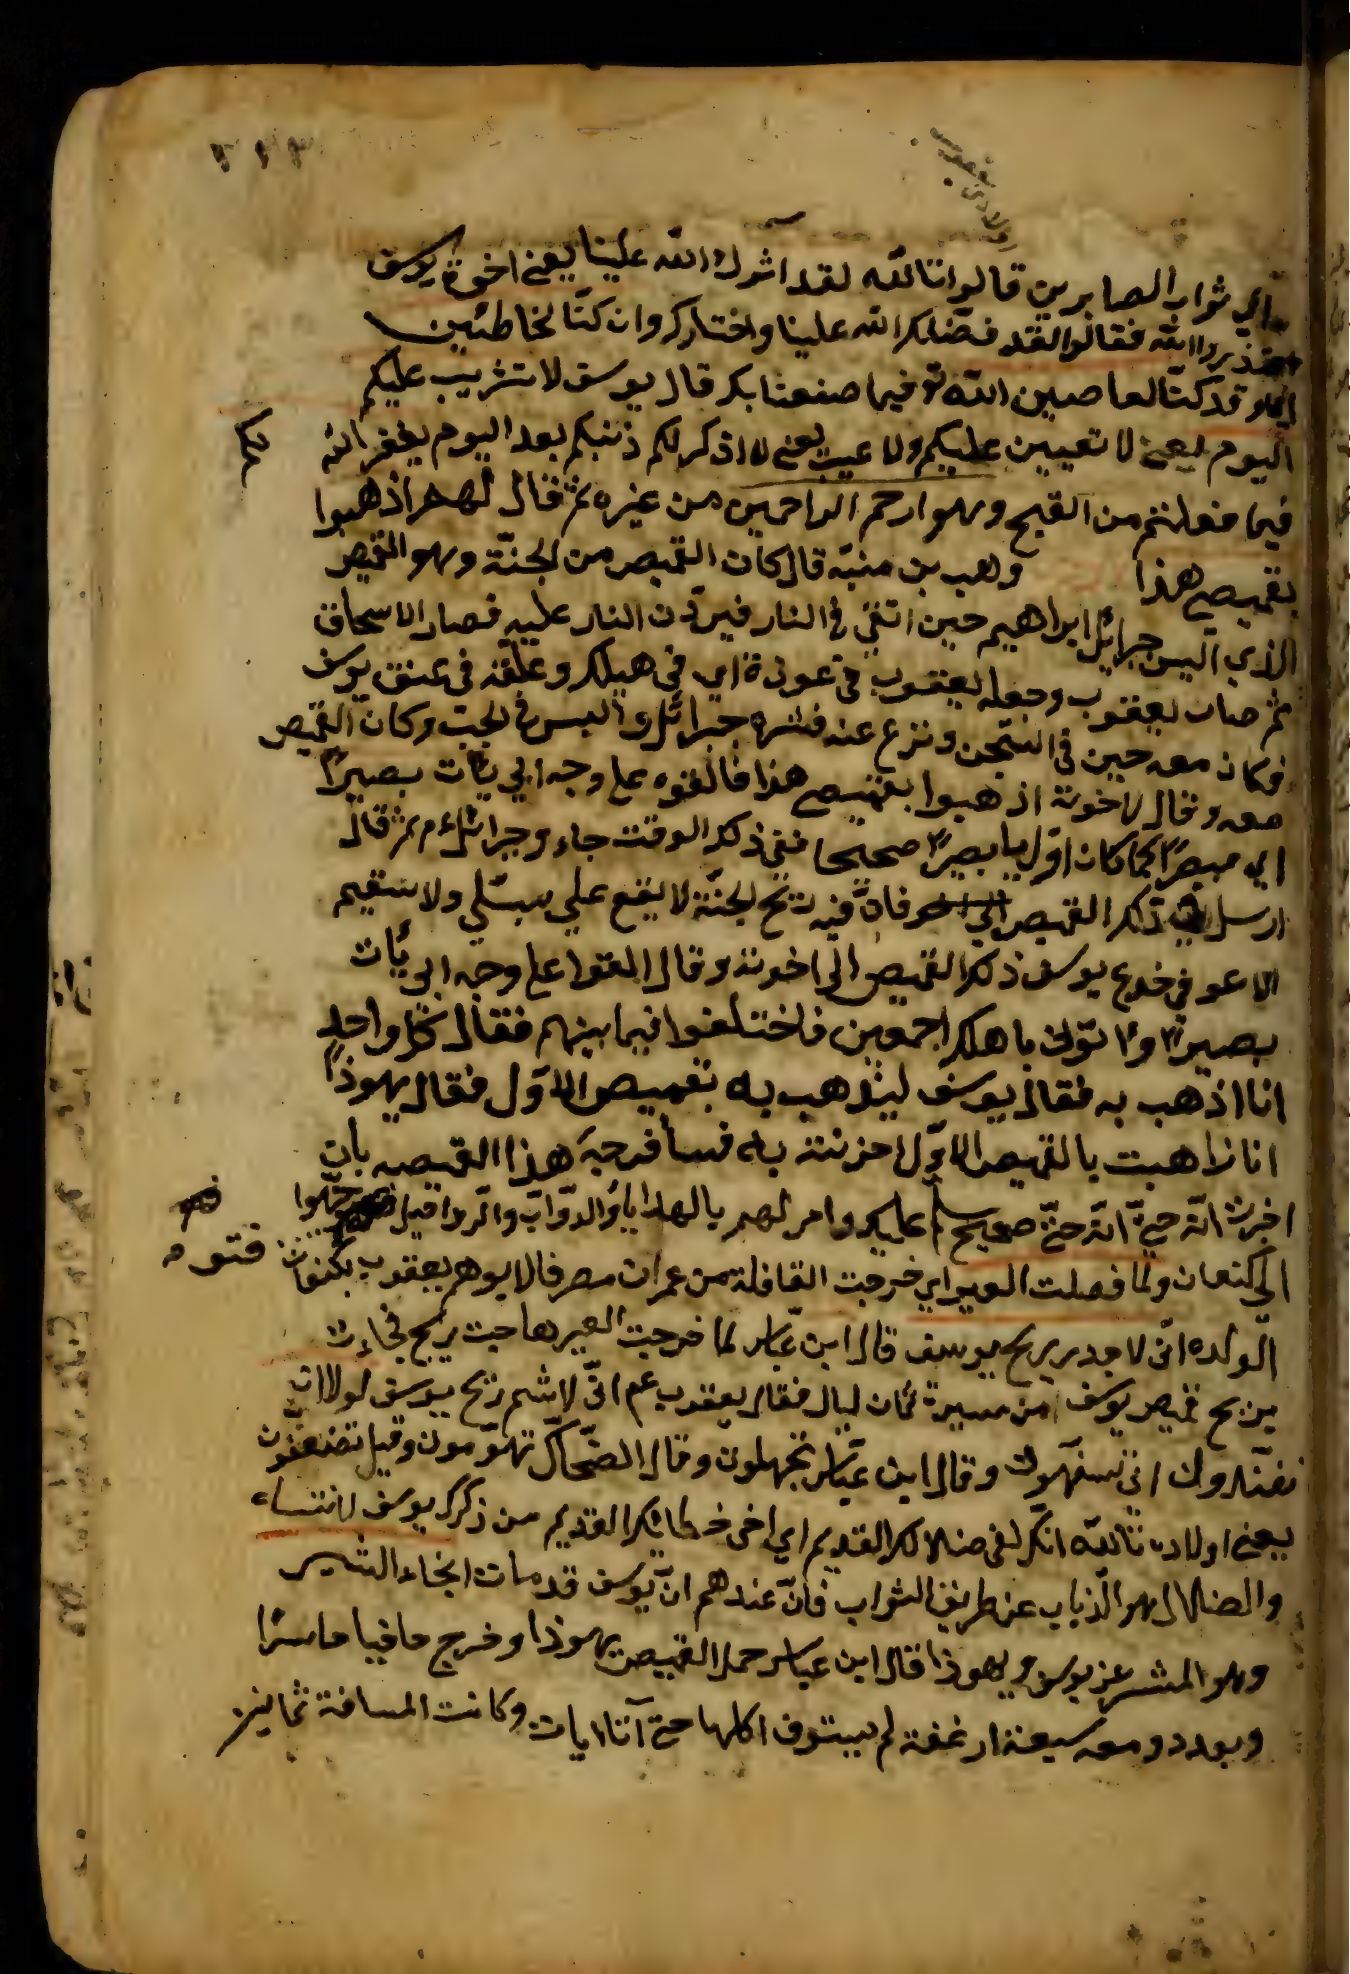 ٢١٣
اي ثواب الصابرين قالوا تالله لقد آثرك الله علينا يعني اخوة يوسف
فقالوا لقد فضلك الله علينا واختارك وان كنّا لخاطئين
وقد كنّا لعاصين الله تع فيما صنعنا بك قال يوسف لا تثريب عليكم
اليوم يعني لا تعيين عليكم ولا عيب يعني لا اذكر لكم ذنبكم بعد اليوم يغفر الله
لكم
فيما فعلتم من القبح وهو ارحم الراحمين من غيره ثم قال لهم اذهبوا
بقميصي هذا وهب بن منبّه قال كان القميص من الجنّة وهو القميص
الذي البس جبرائيل ابراهيم حين القي في النار فبردت النار عليه فصار لاسحاق
ثم صار ليعقوب وجعله يعقوب في عوذة اي في هيكل وعلّقه في عنق يوسف
فكان معه حين في السجن ونزع عنه جبرائيل والبس في الجبّ وكان القميص
معه وقال لاخوته اذهبوا بقميصي هذا فالقوه على وجه ابي يأت بصيرًا
اي مبصرًا كما كان اوّل بصيرًا صحيحا ففي ذلك الوقت جاء جبرائيل ثم قال
ارسل ذلك القميص فانّ فيه ريح الجنّة لا يقع علي مبتلي ولا سقيم
الا عوفي فدفع يوسف ذلك القميص الى اخوته وقال القوا على وجه ابي يأت
بصيرًا وأتوني باهلكم اجمعين فاختلفوا فيما بينهم فقال كل واحد
انا اذهب به فقال يوسف ليذهب به بقميص الاوّل فقال يهوذا
انا ذاهبت بالقميص الاوّل احزنته به فسافرحه هذا القميص بان
اخبرت انّه حيّ انّه حيّ صحيح سلم عليكم وامر لهم بالهدايا والدوّاب والرواحل فتوجّهوا
الى كنعان ولما فصلت العير اي خرجت القافلة من عمران مصر قال ابوهم يعقوب بكنعان
لولده انّي لاجد ريح يوسف قال ابن عبّاس لما خرجت العير هاجت ريح فجاءت
بريح قميص يوسف من مسيرة ثمان ليال فقال يعقوب عم انّي لاشم ريح يوسف لولا ان
تفنّدون اي تسفّهون وقال ابن عبّاس تجهلون وقال الضحّاك تهرّمون وقيل تضعّفون
يعني اولاده تالله انّك لفي ضلالك القديم اي في خطائك القديم من ذكرك يوسف لا تنساه
والضلال هو الذباب عن طريق الثواب فانّ عندهم انّ يوسف قد مات فجاء البشير
وهو المبشر عن يوسف وهو يهوذا قال ابن عباس حمل القميص يهوذا وخرج حافيا حاسرًا
ويعدو ومعه سبعة ارغفة لم يستوف اكلها حتى آتا اياه وكانت المسافة ثمانين